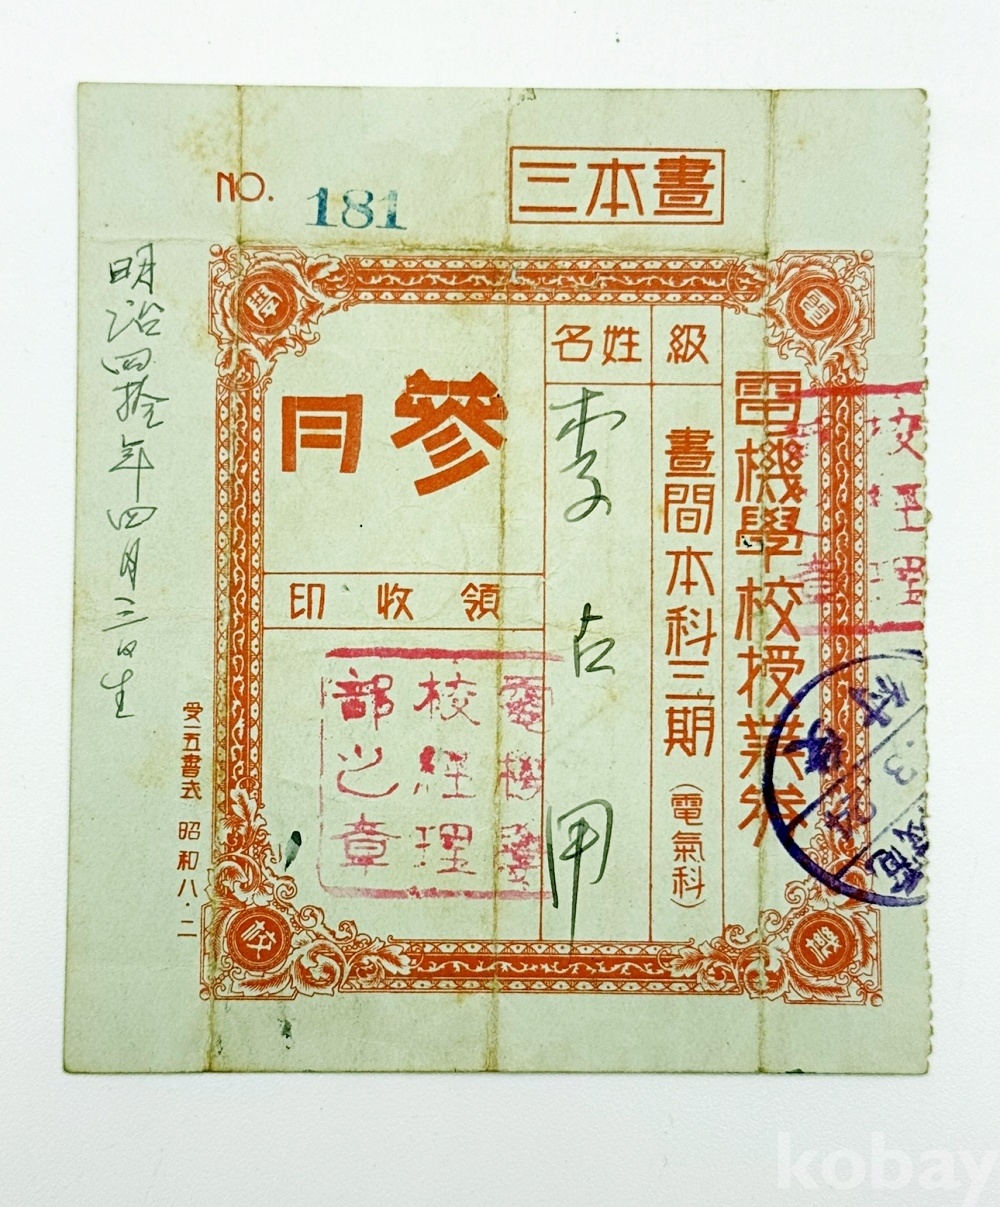 NO. 181
晝本三
電機學校授業券
級
晝間本科三期（電氣科）
姓名
李占甲
參月
領收印
電機學
校經理
部之章
校經理
受一五書式 昭和八・二
明治四拾年四月三日生
電
機
學
校
3.24
kobay